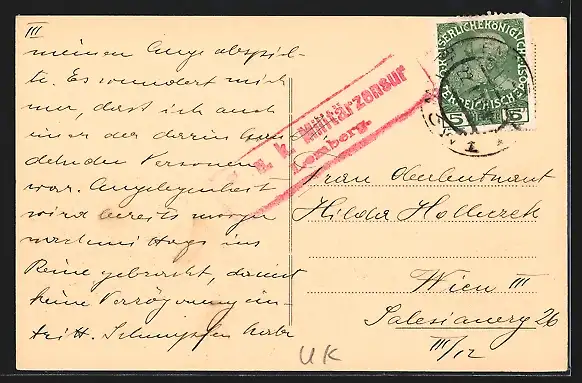 III
meinen Auge abspiel-
te. Es wundert mich
nur, dass ich auch
einer der darin han-
delnden Personen
war. Angelegenheit
wird bereits morgen
nachmittags ins
Reine gebracht, damit
keine Verzögerung ein-
tritt.
K. k. Militärzensur
Lemberg.
KAISERLICHE KÖNIGLICHE POST
ÖSTERREICHISCHE
5 5
Frau Oberleutnant
Hilda
Wien III
Salesianerg 26
III/12
UK